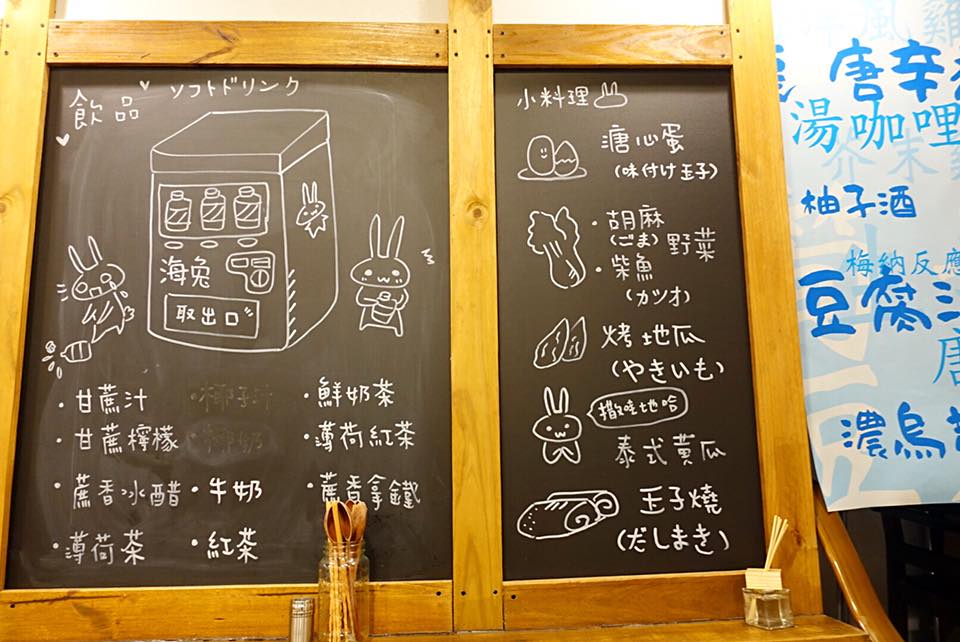 飲品 ソフトドリンク
海兔
取出口
・甘蔗汁
・甘蔗檸檬
・蔗香冰醋
・薄荷茶
・椰子汁
・椰奶
・牛奶
・紅茶
・鮮奶茶
・薄荷紅茶
・蔗香拿鐵
小料理
溏心蛋
(味付け玉子)
・胡麻
(ごま)
野菜
・柴魚
(カツオ)
烤地瓜
(やきいも)
撒哇地哈
泰式黄瓜
玉子燒
(だしまき)
唐辛
湯咖哩
柚子酒
梅納反應
豆腐
唐
濃烏